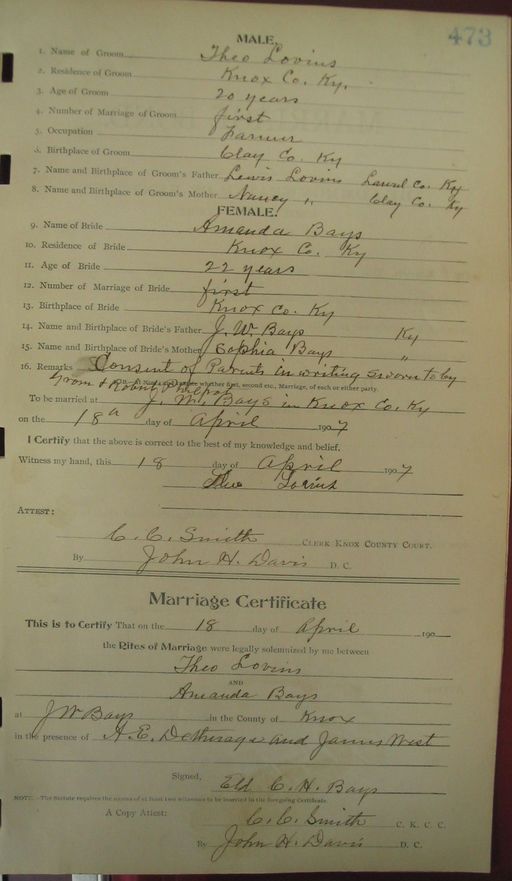 473
MALE.
1. Name of Groom Theo Lovins
2. Residence of Groom Knox Co. Ky.
3. Age of Groom 20 years
4. Number of Marriage of Groom first
5. Occupation Farmer
6. Birthplace of Groom Clay Co. Ky
7. Name and Birthplace of Groom's Father Lewis Lovins Laurel Co. Ky
8. Name and Birthplace of Groom's Mother Nancy " Clay Co. Ky
FEMALE.
9. Name of Bride Amanda Bays
10. Residence of Bride Knox Co. Ky
11. Age of Bride 22 years
12. Number of Marriage of Bride first
13. Birthplace of Bride Knox Co. Ky
14. Name and Birthplace of Bride's Father J. W. Bays Ky
15. Name and Birthplace of Bride's Mother Sophia Bays "
16. Remarks Consent of Parents in writing sworn to by
Groom &
whether first, second etc., Marriage, of each or either party.
To be married at J. W. Bays in Knox Co. Ky
on the 18 day of April 1907
I Certify that the above is correct to the best of my knowledge and belief.
Witness my hand, this 18 day of April 1907
Theo Lovins
ATTEST:
C. C. Smith CLERK KNOX COUNTY COURT.
By John H. Davis D. C.
Marriage Certificate
This is to Certify That on the 18 day of April 190
the Rites of Marriage were legally solemnized by me between
Theo Lovins
AND
Amanda Bays
at J W Bays in the County of Knox
in the presence of A. E. and James West
Signed, Eld C. H. Bays
NOTE.—The Statute requires the names of at least two witnesses to be inserted in the foregoing Certificate.
A Copy Attest: C. C. Smith C. K. C. C.
By John H. Davis D. C.